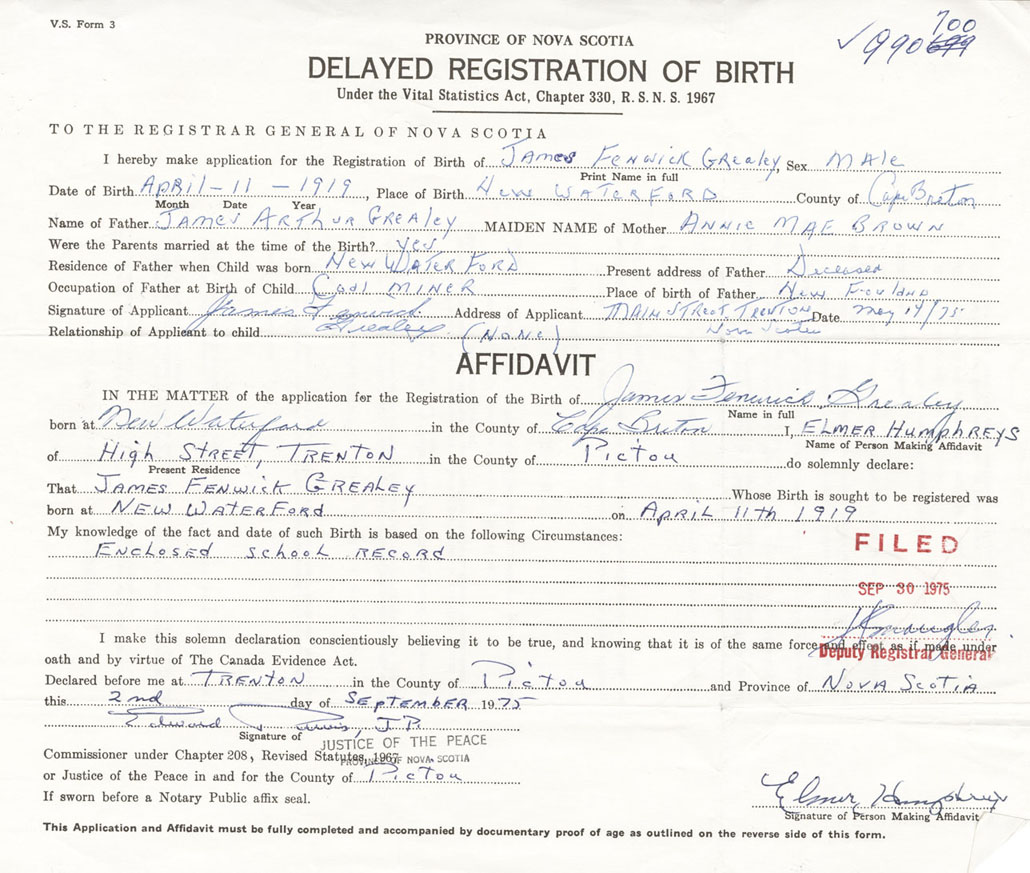 V.S. Form 3
700
✓990 699
PROVINCE OF NOVA SCOTIA
DELAYED REGISTRATION OF BIRTH
Under the Vital Statistics Act, Chapter 330, R. S. N. S. 1967
TO THE REGISTRAR GENERAL OF NOVA SCOTIA
I hereby make application for the Registration of Birth of James Fenwick Grealey, Sex MALE
Print Name in full
Date of Birth APRIL-11-1919, Place of Birth NEW WATERFORD County of Cape Breton
Month Date Year
Name of Father JAMES ARTHUR GREALEY MAIDEN NAME of Mother ANNIE MAE BROWN
Were the Parents married at the time of the Birth? yes
Residence of Father when Child was born NEW WATER FORD Present address of Father Deceased
Occupation of Father at Birth of Child COAL MINER Place of birth of Father New Founland
Signature of Applicant James Fenwick Address of Applicant MAIN STREET, TRENTON Date May 14/75
Grealey Nova Scotia
Relationship of Applicant to child (NONE)
AFFIDAVIT
IN THE MATTER of the application for the Registration of the Birth of James Fenwick Grealey
Name in full
born at New Waterford in the County of Cape Breton I, ELMER HUMPHREYS
Name of Person Making Affidavit
of HIGH STREET, TRENTON in the County of PICTOU do solemnly declare:
Present Residence
That JAMES FENWICK GREALEY Whose Birth is sought to be registered was
born at NEW WATERFORD on APRIL 11TH 1919
My knowledge of the fact and date of such Birth is based on the following Circumstances:
ENCLOSED SCHOOL RECORD
FILED
SEP 30 1975
I make this solemn declaration conscientiously believing it to be true, and knowing that it is of the same force and effect as if made under
Deputy Registrar General
oath and by virtue of The Canada Evidence Act.
Declared before me at TRENTON in the County of PICTOU and Province of NOVA SCOTIA
this 2nd day of SEPTEMBER 1975
Edward J.P.
Signature of
JUSTICE OF THE PEACE
Commissioner under Chapter 208, Revised Statutes, 1967
PROVINCE OF NOVA SCOTIA
or Justice of the Peace in and for the County of PICTOU
If sworn before a Notary Public affix seal.
Elmer Humphreys
Signature of Person Making Affidavit
This Application and Affidavit must be fully completed and accompanied by documentary proof of age as outlined on the reverse side of this form.